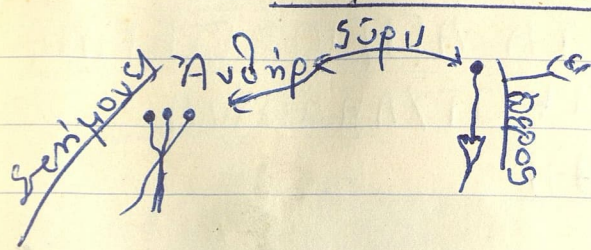 Στήμονες
Ἀνθήρ
γύρη
ὕπερος